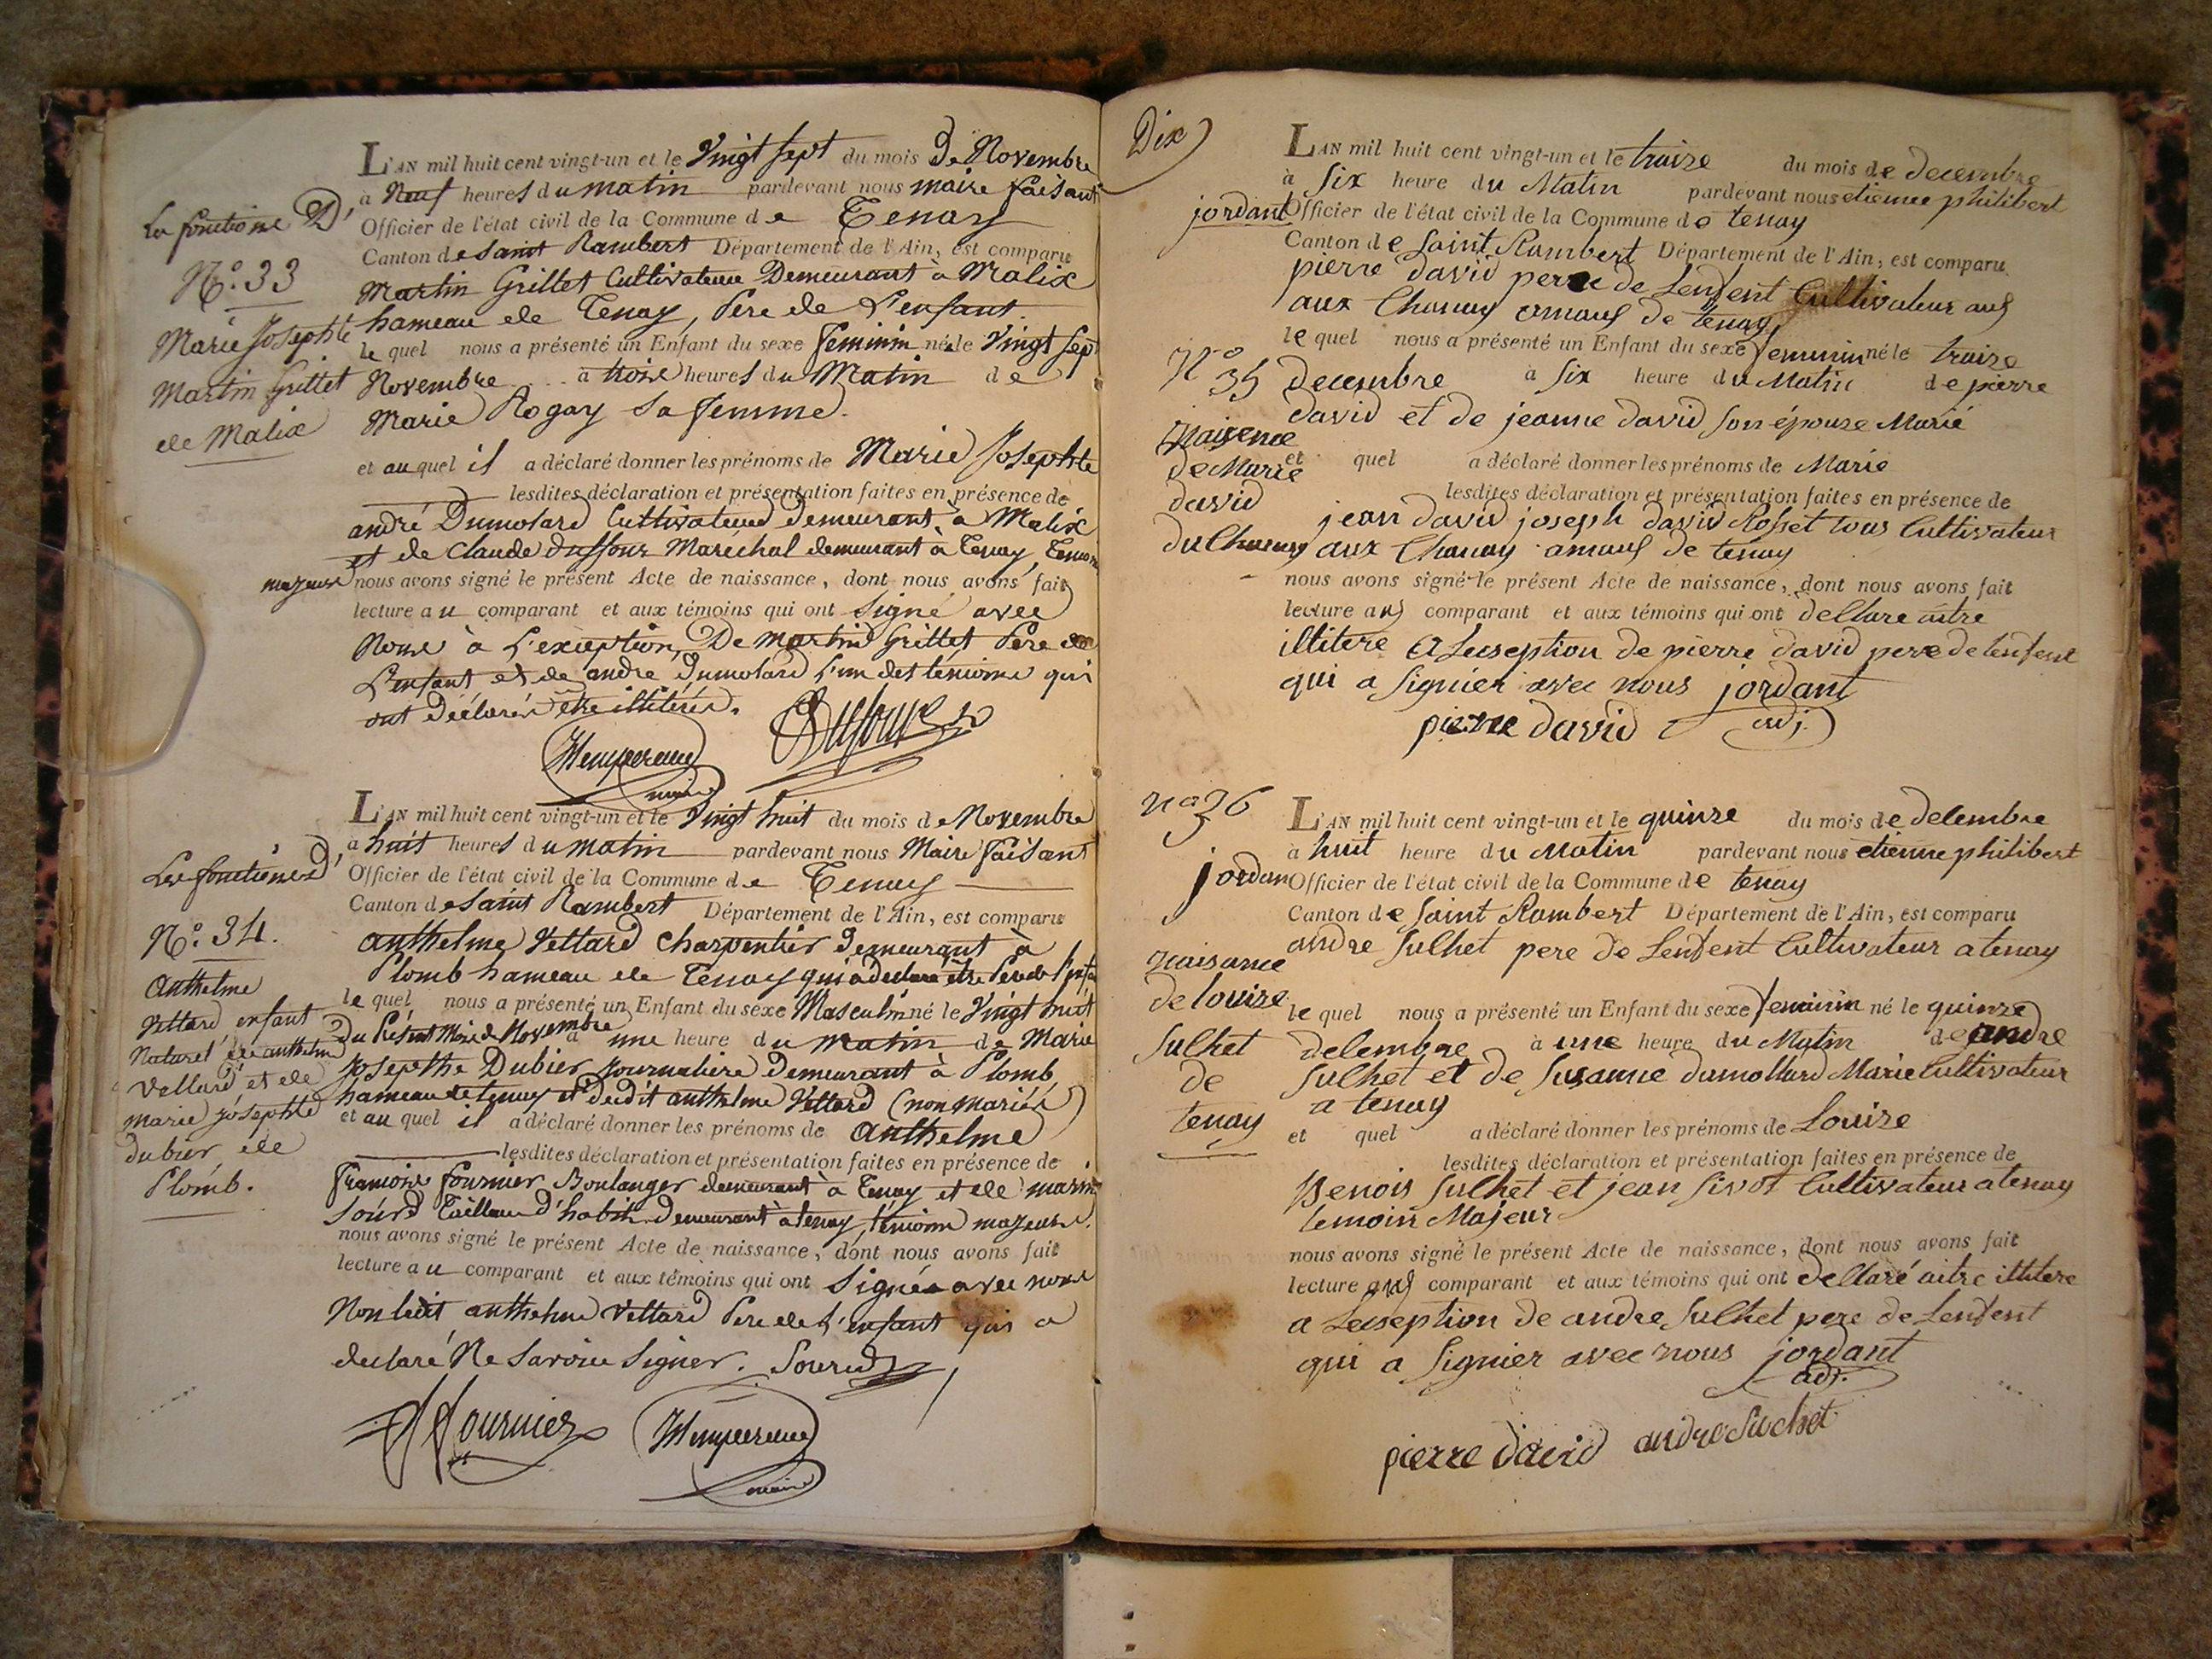 L'AN mil huit cent vingt-un et le Vingt sept du mois De Novembre
à Neuf heures du matin pardevant nous maire faisant
les fonctions D'
Officier de l'état civil de la Commune de Tenay
Canton de saint Rambert Département de l'Ain, est comparu
N.o 33
Martin Grillet Cultivateur Demeurant à Malix
hameau de Tenay, Pere de L'enfant.
Marie Josephte
Martin Grillet
de Malix
le quel nous a présenté un Enfant du sexe feminin né le Vingt sept
Novembre à troise heures du Matin de
Marie Rogay sa femme.
et au quel il a déclaré donner les prénoms de Marie Josephte
lesdites déclaration et présentation faites en présence de
andré Dumolard Cultivateur demeurant à Malix
et de Claude duffour Maréchal demeurant à Tenay, temoins
majeurs nous avons signé le présent Acte de naissance, dont nous avons fait
lecture au comparant et aux témoins qui ont Signé avec
Nous à L'exception De Martin Grillet Pere de
L'enfant et de andre dumolard L'un des temoins qui
ont déclarés etre illitérés.
Dufour
maire
L'AN mil huit cent vingt-un et le Vingt huit du mois de Novembre
à huit heures du matin pardevant nous Maire faisant
Les fonctions D'
Officier de l'état civil de la Commune de Tenay
Canton de saint Rambert Département de l'Ain, est comparu
N.o 34.
anthelme Vettard charpentier demeurant à
Plomb hameau de Tenay qui a declaré etre Pere de l'enfant
Anthelme
Vettard enfant
Naturel de anthelme
Vettard et de
marie josephte
dubier de
Plomb.
le quel nous a présenté un Enfant du sexe Masculin né le Vingt huit
du Présent Mois de Novembre à une heure du matin de Marie
Josephte Dubier journaliere Demeurant à Plomb
hameau de tenay et dudit anthelme Vettard (non mariés)
et au quel il a déclaré donner les prénoms de anthelme
lesdites déclaration et présentation faites en présence de
françois fournier Boulanger demeurant à Tenay et de marin
Sourd Tailleur d'habits demeurant à tenay, témoins majeurs.
nous avons signé le présent Acte de naissance, dont nous avons fait
lecture au comparant et aux témoins qui ont Signés avec nous
Non ledit anthelme Vettard Pere de L'enfant qui a
declaré Ne Savoir Signer. Sourd
fournier
maire
Dix
L'AN mil huit cent vingt-un et le traize du mois de decembre
à six heure du Matin pardevant nous etienne philibert
jordant
Officier de l'état civil de la Commune de tenay
Canton de saint Rambert Département de l'Ain, est comparu
pierre david pere de Lenfent Cultivateur aus
aux Chanay amaus de tenay
le quel nous a présenté un Enfant du sexe feminin né le traize
N.o 35
decembre à six heure du Matin de pierre
david et de jeanne david son épouze Marié
Naisence
de Marie
david
du Chanay
et quel a déclaré donner les prénoms de Marie
lesdites déclaration et présentation faites en présence de
jean david joseph david Rosset tous Cultivateur
aux Chanay amaus de tenay
nous avons signé le présent Acte de naissance, dont nous avons fait
lecture aus comparant et aux témoins qui ont dellare aitre
illitere a Lecseption de pierre david pere de lenfent
qui a signier avec nous jordant
pierre david adj.
no 36
L'AN mil huit cent vingt-un et le quinze du mois de delembre
à huit heure du Matin pardevant nous etienne philibert
jordan
Officier de l'état civil de la Commune de tenay
Canton de saint Rambert Département de l'Ain, est comparu
andre sulhet pere de Lenfent Cultivateur a tenay
naisance
de louize
sulhet
de
tenay
le quel nous a présenté un Enfant du sexe femainin né le quinze
delembre à une heure du Matin de andre
sulhet et de susanne dumollard Marie Cultivateur
a tenay
et quel a déclaré donner les prénoms de Louize
lesdites déclaration et présentation faites en présence de
Benois sulhet et jean sivot Cultivateur a tenay
temoin Majeur
nous avons signé le présent Acte de naissance, dont nous avons fait
lecture aus comparant et aux témoins qui ont dellaré aitre illitere
a Lecseption de andre sulhet pere de Lenfent
qui a signier avec nous jordant
adj.
pierre david andre Suchet